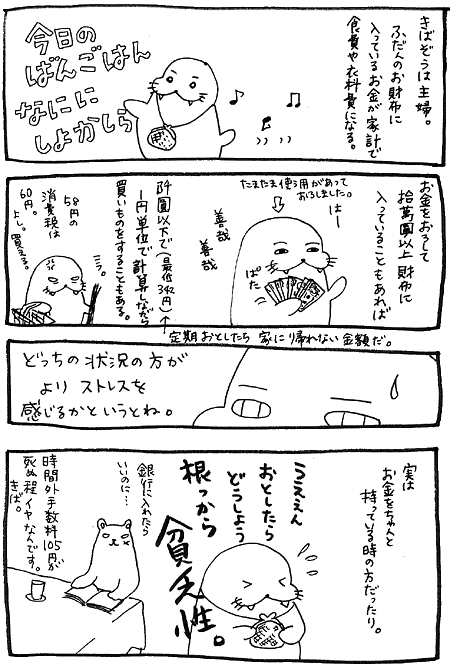 きばぞうは主婦。
ふだんのお財布に
入っているお金が家計で
食費や衣料費になる。
今日の
ばんごはん
なにに
しよかしら
お金をおろして
拾萬圓以上財布に
入っていることもあれば
たまたま使う用があって
おろしました。
はー
善哉
善哉
ぱた
阡圓以下で(最低342円)
1円単位で計算しながら
買いものをすることもある。
定期おとしたら家に帰れない金額だ。
58円の
消費税は
60円。
よし。買える。
どっちの状況の方が
よりストレスを
感じるかというとね。
実は
お金をちゃんと
持っている時の方だったり。
うええん
おとしたら
どうしよう
根っから
貧乏性。
銀行に入れたら
いいのに…
時間外手数料105円が
死ぬ程イヤなんです。
きば。